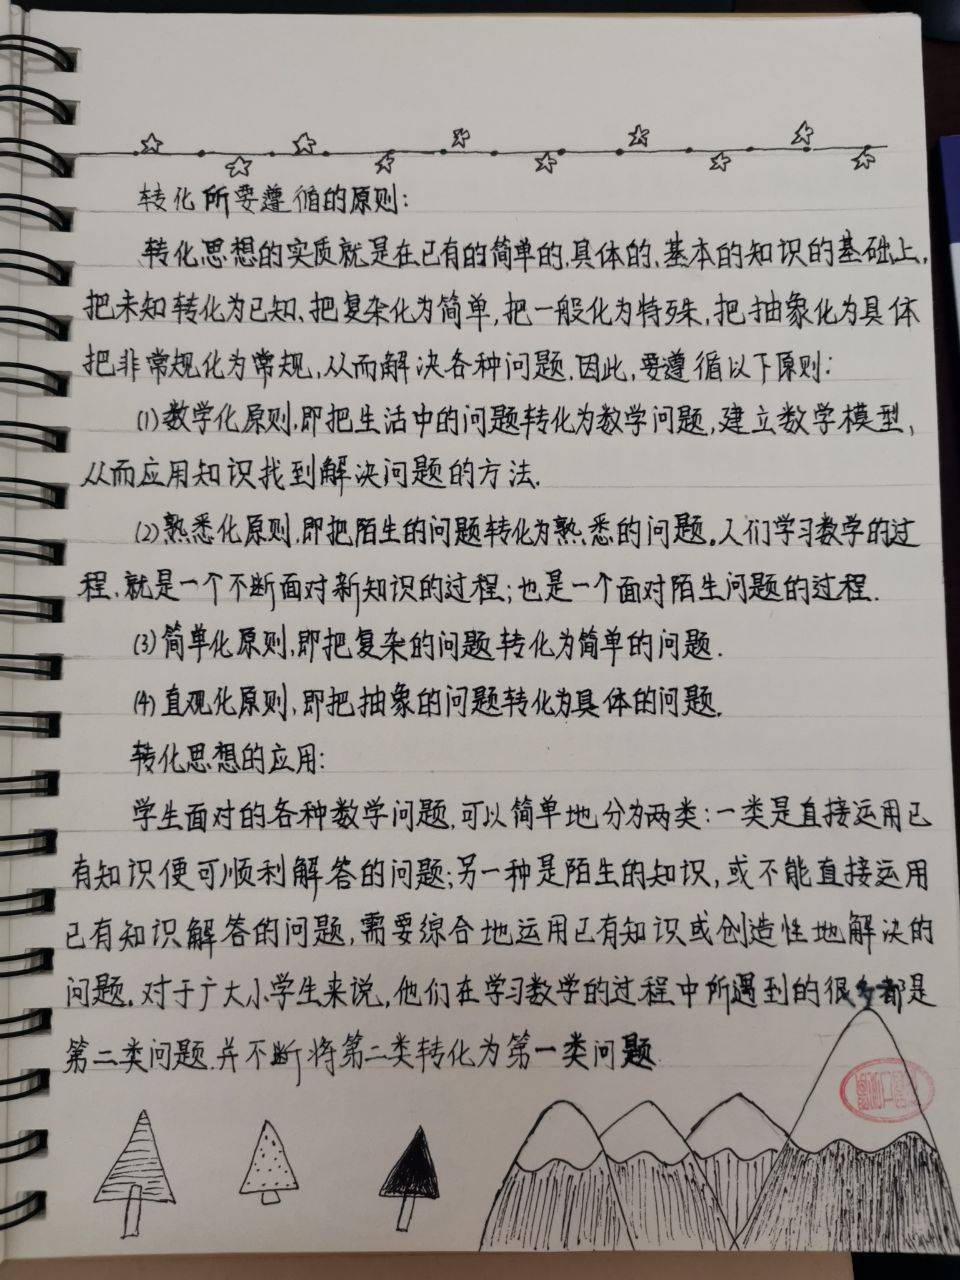 转化所要遵循的原则:
转化思想的实质就是在已有的简单的、具体的、基本的知识的基础上,
把未知转化为已知、把复杂化为简单,把一般化为特殊,把抽象化为具体
把非常规化为常规,从而解决各种问题.因此,要遵循以下原则:
(1)数学化原则,即把生活中的问题转化为数学问题,建立数学模型,
从而应用知识找到解决问题的方法.
(2)熟悉化原则,即把陌生的问题转化为熟悉的问题。人们学习数学的过
程、就是一个不断面对新知识的过程;也是一个面对陌生问题的过程.
(3)简单化原则,即把复杂的问题转化为简单的问题.
(4)直观化原则,即把抽象的问题转化为具体的问题.
转化思想的应用:
学生面对的各种数学问题,可以简单地分为两类:一类是直接运用已
有知识便可顺利解答的问题;另一种是陌生的知识,或不能直接运用
已有知识解答的问题,需要综合地运用已有知识或创造性地解决的
问题。对于广大小学生来说,他们在学习数学的过程中所遇到的很多都是
第二类问题.并不断将第二类转化为第一类问题.